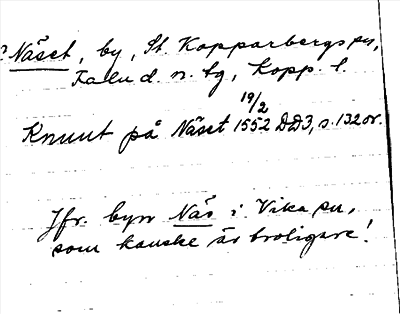 ? Näset, by, St. Kopparbergs sn,
Falu d. n. tg, Kopp. l.
19/2
Knut på Näset 1552 DD3, s. 132 or.
Jfr. byn Näs i Vika sn,
som kanske är troligare!